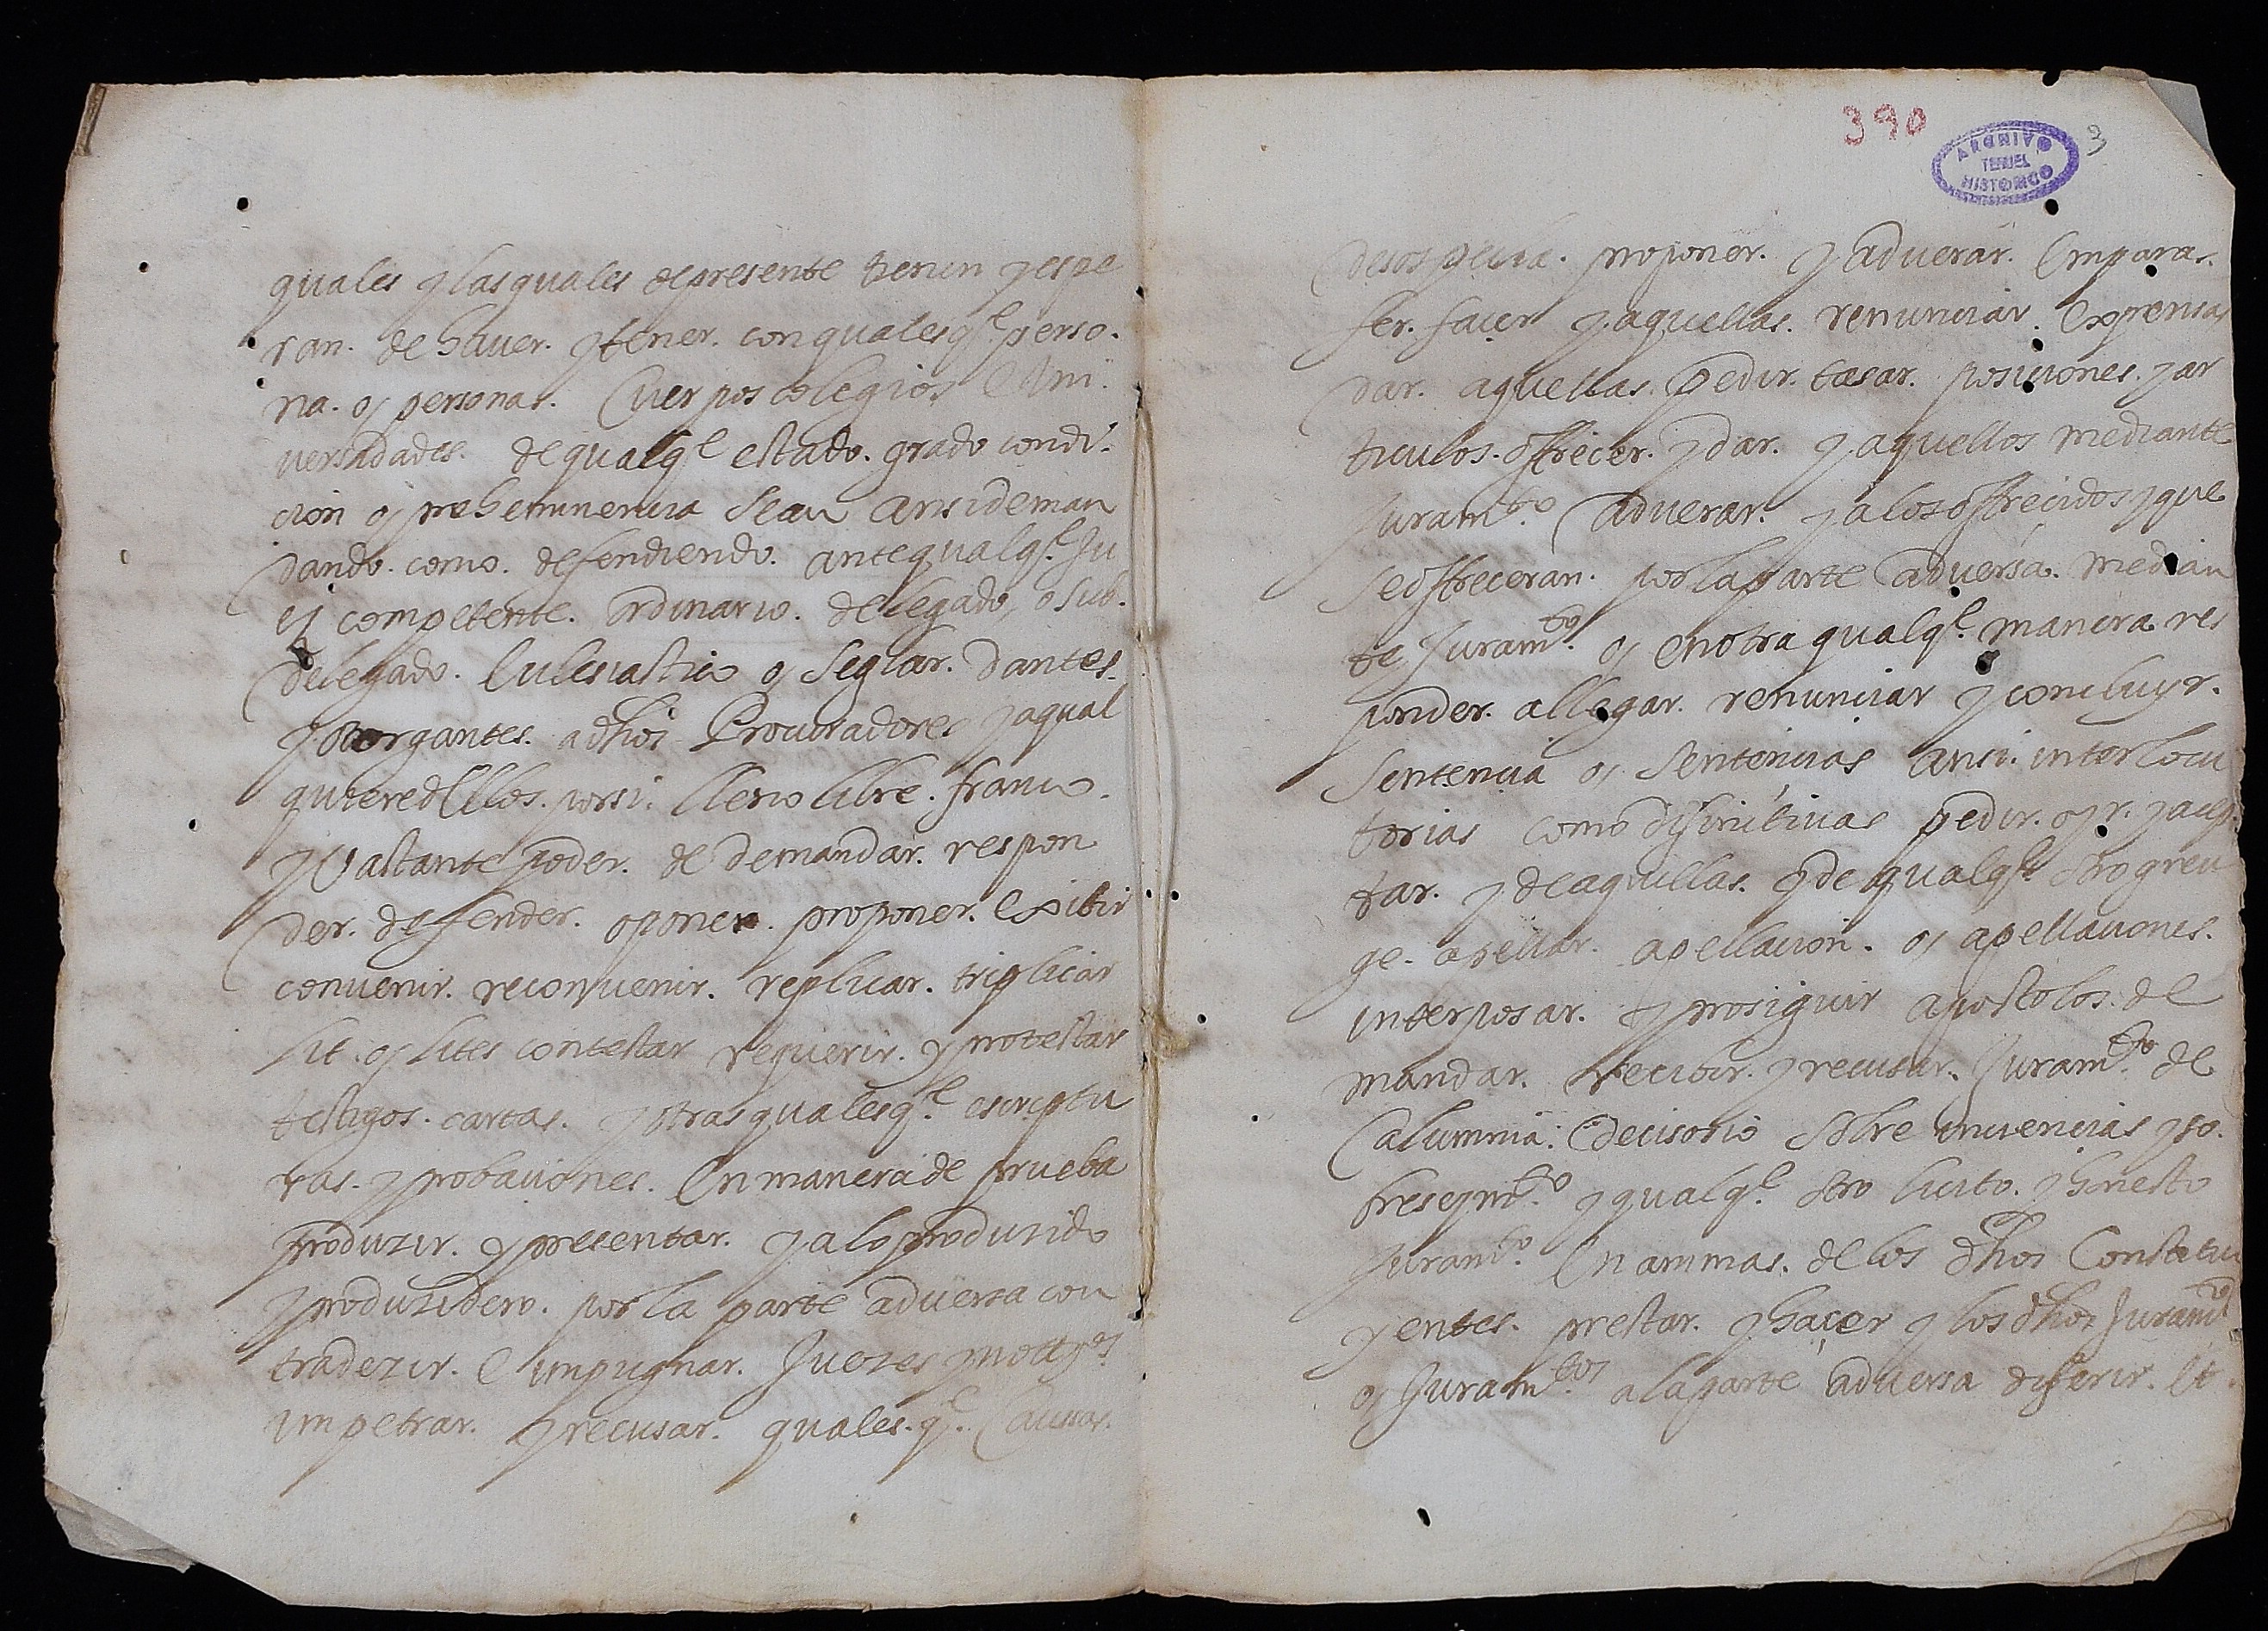 quales y las quales de presente tienen y espe
ran. de hauer. y tener. con qualesq.l perso.
na. o, personas. Cuerpos colegios Uni.
uersidades. de qualq.l estado. grado condi.
cion o, prehemnencia sean ansi deman
dando. como. defendiendo. ante qualq.l Ju
ez competente. ordinario. delegado, o sub.
delegado. Eclesiastico o, seglar. dantes.
y otorgantes. a dhos Procuradores y a qual
quiere dellos. por si. lleno libre. franco.
y Vastante poder. de demandar. respon
der. defender. oponer. proponer. exibir
conuenir. reconuenir. replicar. triplicar
lit. o, lites contestar requerir. y protestar
testigos. cartas. y otras qualesq.l escriptu
ras. y probaciones. En manera de prueba
produzir. y presentar. y a lo produzido
y produzidero. por la parte aduersa con
tradezir. e impugnar. Juezes y nott.os
impetrar. y recusar. quales.q.l Caussas.
390
3
ARCHIVO
TERUEL
HISTORICO
de sospecha. proponer. y aduerar. Emparas.
fer. façer y aquellas. renunciar. Expensas
dar. aquellas. pedir. tasar. posiciones. y ar
ticulos. offrecer. y dar. y aquellos mediante
Juram.to aduerar. y a los offrecidos y que
se offreceran. por la parte aduersa. median
te Juram.to o, en otra qualq.l manera res
ponder. allegar. renunciar y concluyr.
Sentencia o, sentencias ansi. interlocu
torias como difinitiuas pedir. oyr. y acep.
tar. y de aquellas. y de qualq.l otro greu
ge. apellar. apellacion. o, apellaciones.
interposar. y prosiguir apostolos. de
mandar. recibir. y recusar. Juram.to de
Calumnia. Edecisorio sobre inciencias y so.
breseym.to y qualq.l otro licito. y honesto
Juram.to En animas. de los dhos Constitu
yentes. prestar. y haçer y los dhos Juram.to
o, Juram.tos a la parte aduersa diferir. Et.